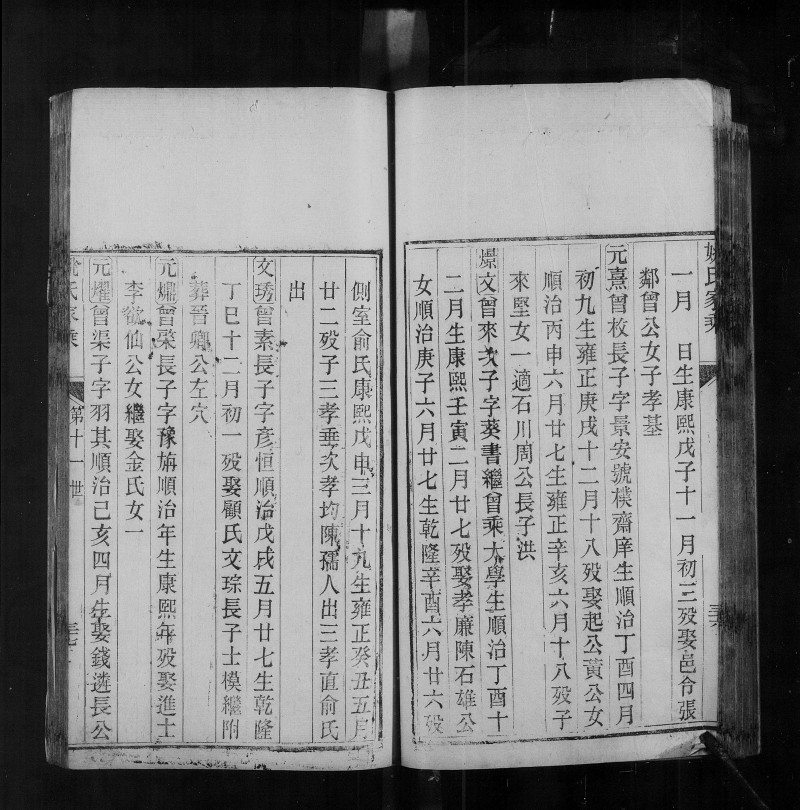 姚氏家乘
三六
一月　日生康熙戊子十一月初三歿娶邑令張
鄰曾公女子孝基
元熹曾枚長子字景安號樸齋庠生順治丁酉四月
初九生雍正庚戌十二月十八歿娶起公黃公女
順治丙申六月廿七生雍正辛亥六月十八歿子
來堅女一適石川周公長子洪
燝文曾來次子字葵書繼曾乘大學生順治丁酉十
二月生康熙壬寅二月廿七歿娶孝廉陳石雄公
女順治庚子六月廿七生乾隆辛酉六月廿六歿
側室俞氏康熙戊申三月十九生雍正癸丑五月
廿二歿子三孝垂次孝均陳孺人出三孝直俞氏
出
文琇曾素長子字彥恒順治戊戌五月廿七生乾隆
丁巳十二月初一歿娶顧氏文琮長子士模繼附
葬晉卿公左穴
元爌曾棐長子字豫旃順治年生康熙年歿娶進士
李欲仙公女繼娶金氏女一
元燿曾渠子字羽其順治己亥四月生娶錢遴長公
姚氏家乘
第十一世
三七